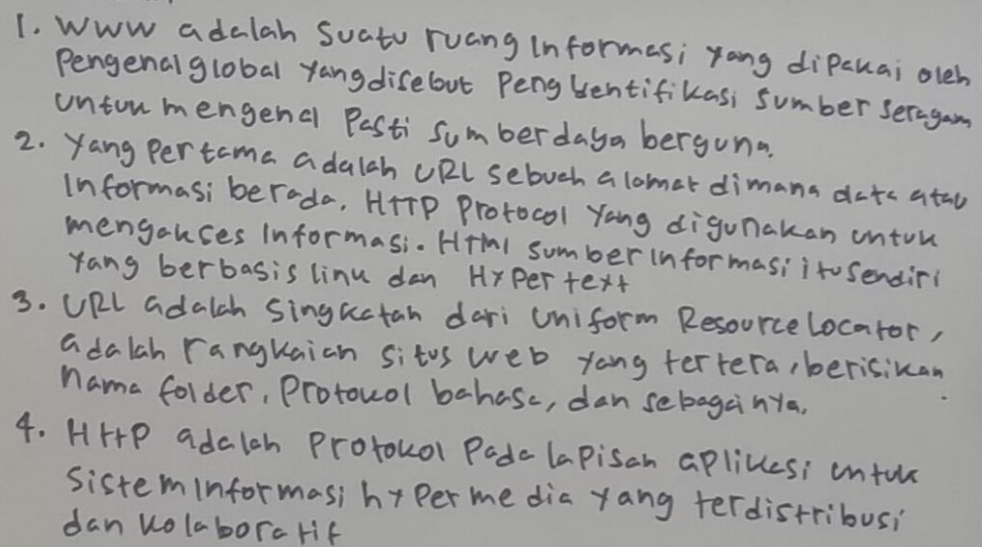 1. WWW adalah Suatu ruang Informasi yang dipakai oleh
Pengenal global yang disebut Pengidentifikasi Sumber seragam
untuk mengenal Pasti Sumber daya berguna.
2. Yang Pertama adalah URL sebuah alamat dimana data atau
Informasi berada. HTTP Protocol yang digunakan untuk
mengakses Informasi. Html Sumber Informasi itu sendiri
Yang berbasis link dan Hypertext
3. URL adalah Singkatan dari Uniform Resource Locator,
adalah rangkaian situs web yang tertera, berisikan
nama folder, Protokol bahasa, dan sebagainya.
4. Http adalah Protokol Pada lapisan aplikasi untuk
Sistem Informasi hypermedia yang terdistribusi
dan kolaboratif